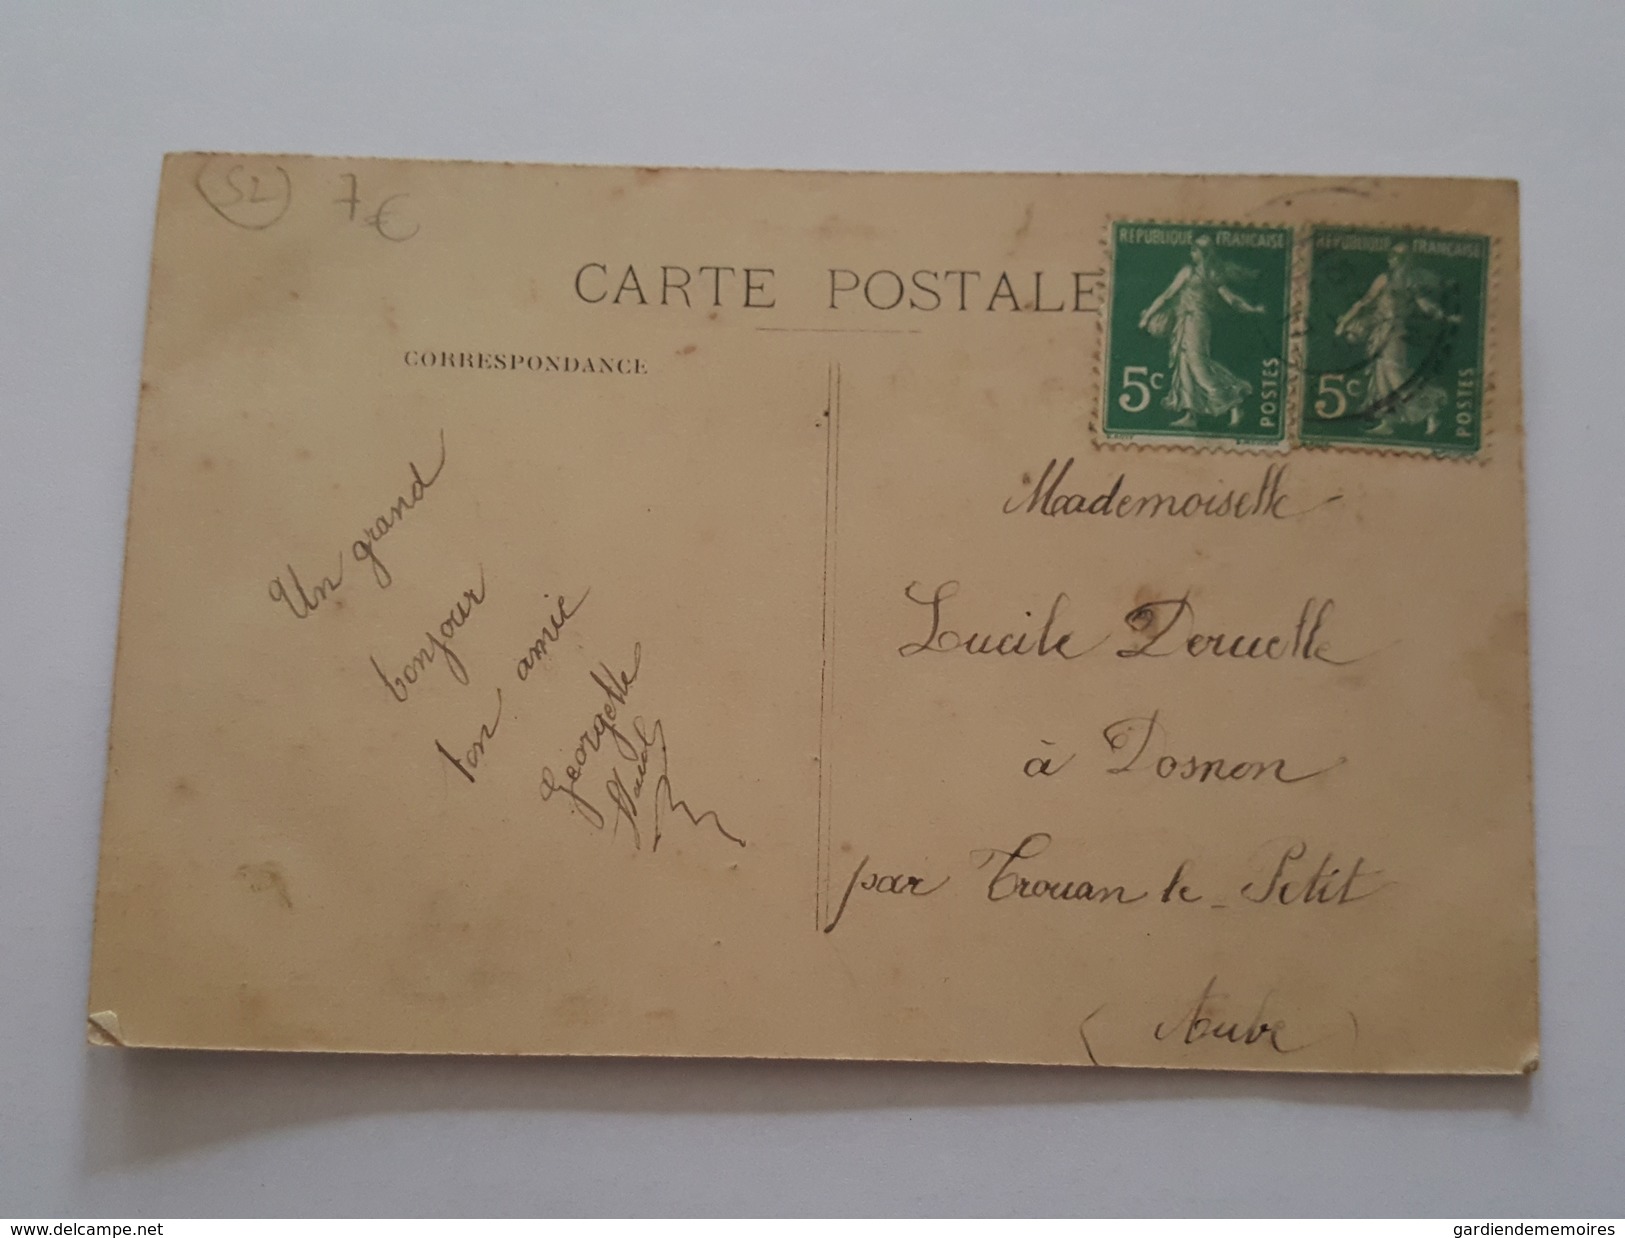 52 7€
CARTE POSTALE
CORRESPONDANCE
RÉPUBLIQUE FRANÇAISE
5c POSTES
RÉPUBLIQUE FRANÇAISE
5c POSTES
Un grand
bonjour
ton amie
Georgette
Mademoiselle
Lucile Deruelle
à Dosnon
par Trouan le-Petit
(Aube)
www.delcampe.net
gardiendememoires